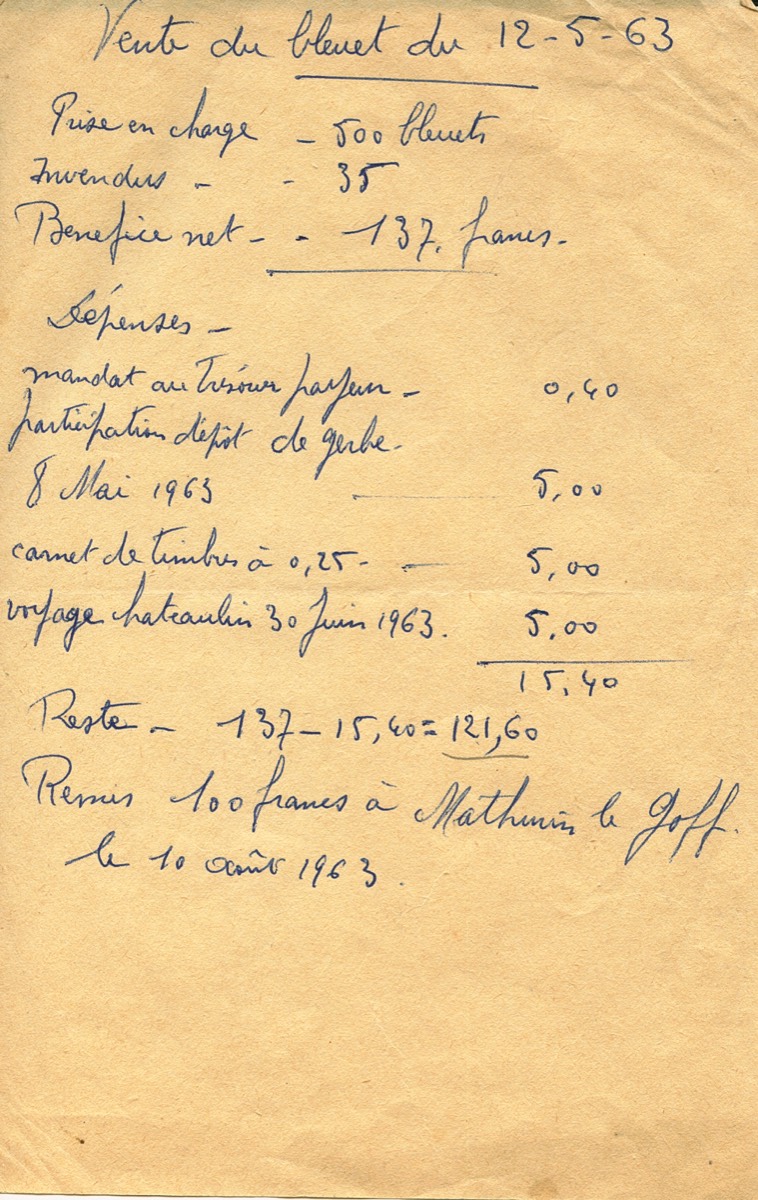 Vente du bleuet du 12-5-63
Prise en charge - 500 bleuets
Invendus - - 35
Benefice net - - 137. francs.
Dépenses -
mandat au Trésorier payeur - 0,40
participation dépôt de gerbe.
8 Mai 1963 — 5,00
carnet de timbres à 0,25 - — 5,00
voyage chateaulin 30 Juin 1963. 5.00
15,40
Reste - 137 - 15,40 = 121,60
Remis 100 francs à Mathurin le Goff.
le 10 août 1963.